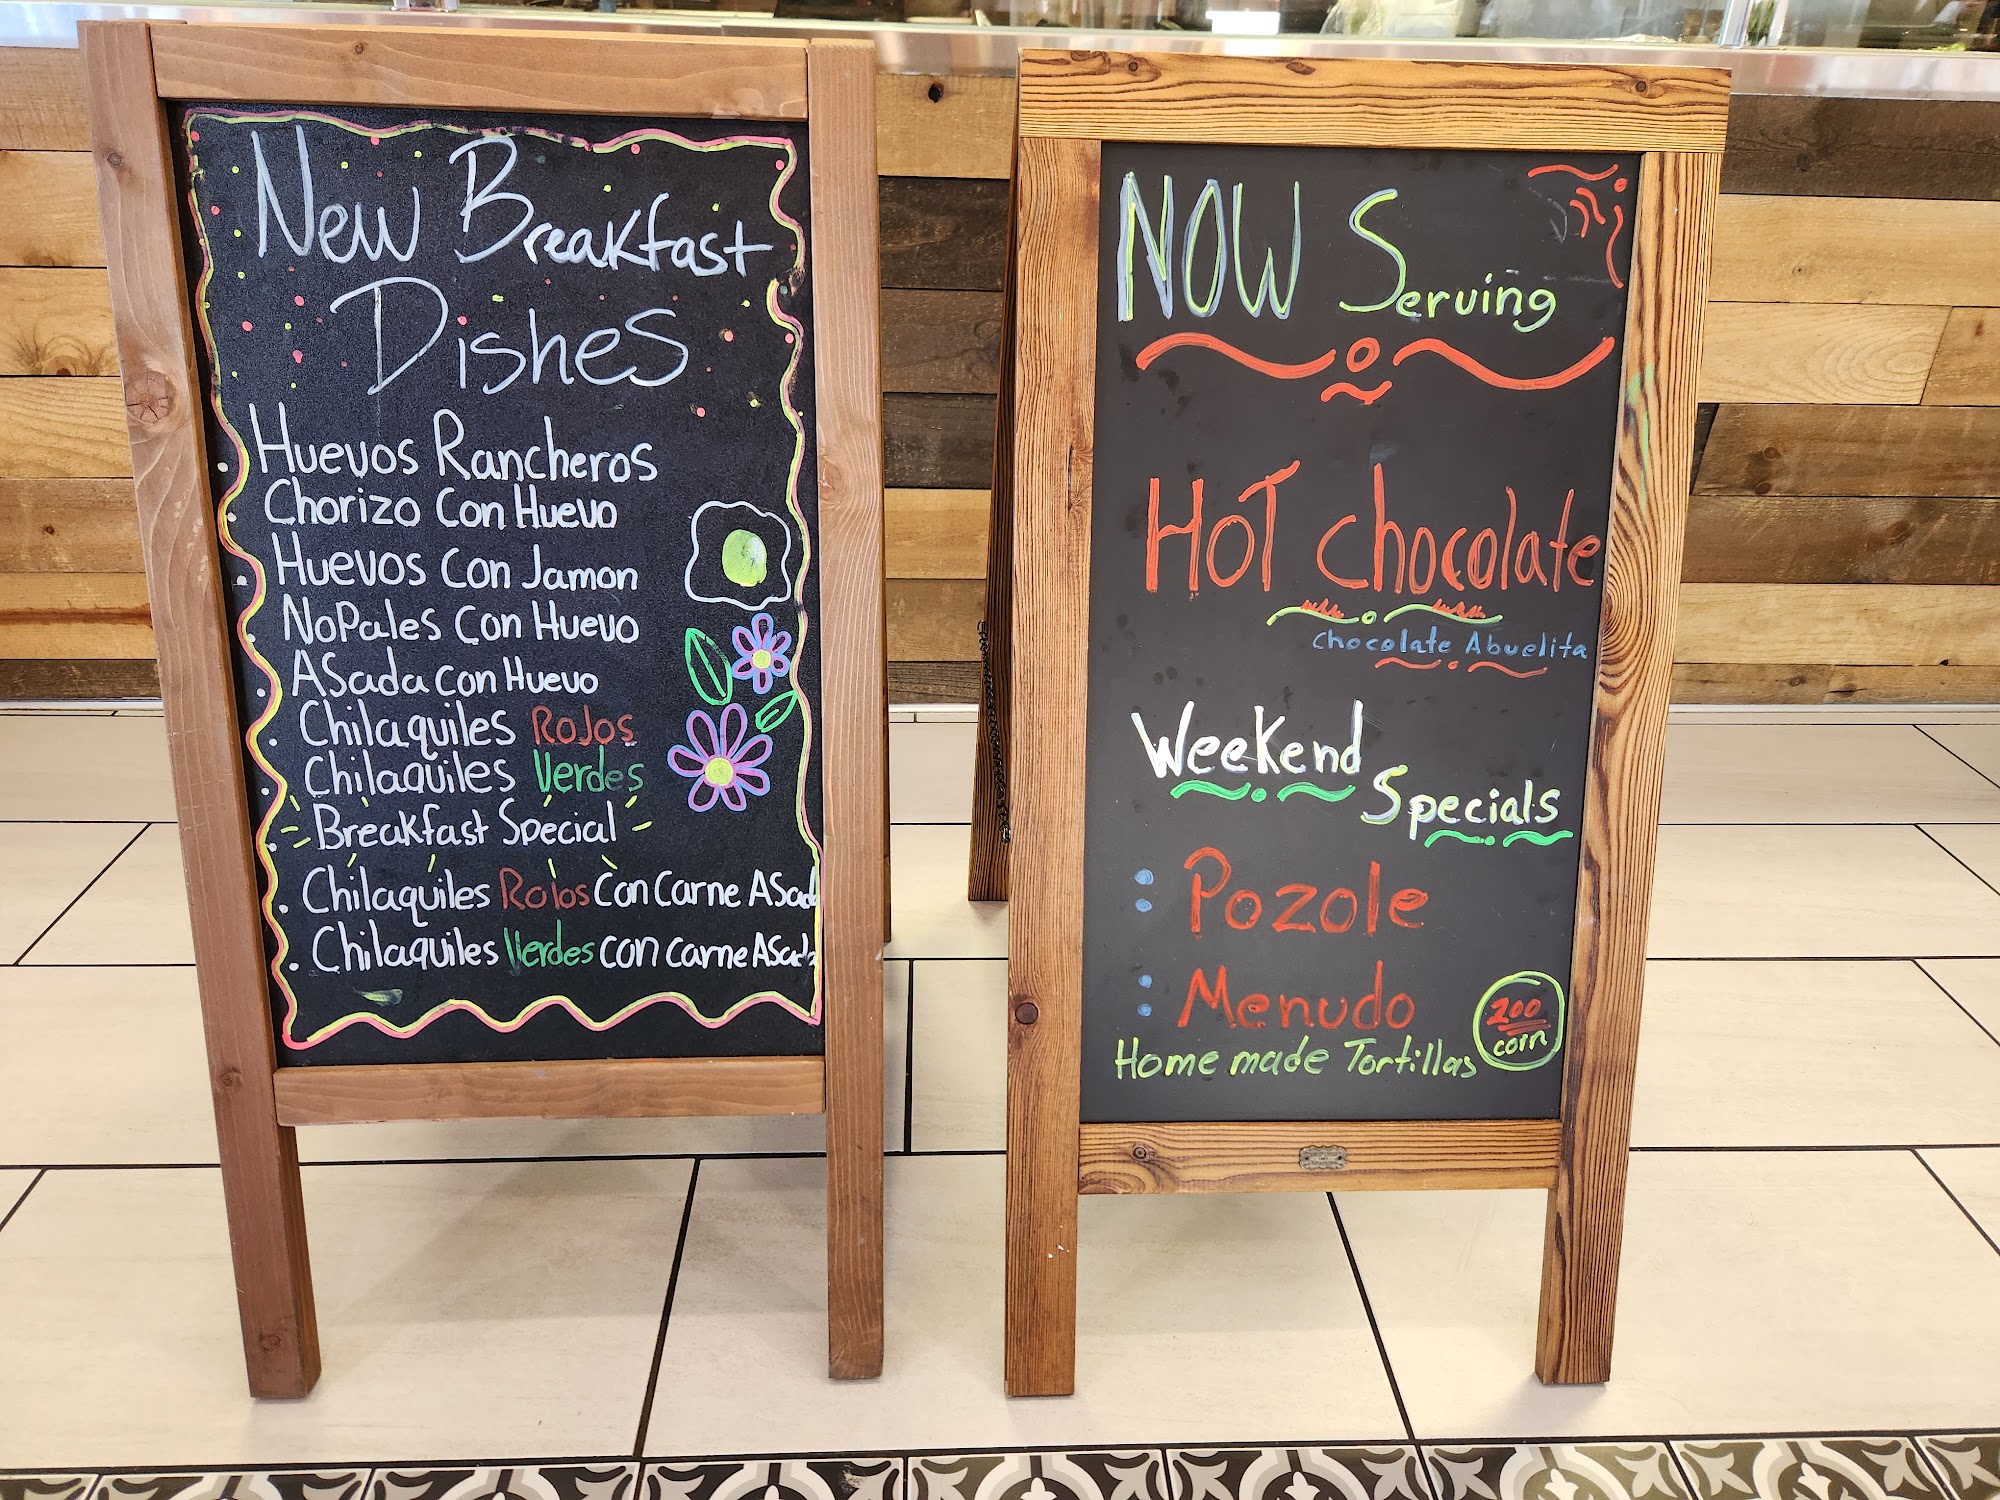 New Breakfast
Dishes
Huevos Rancheros
Chorizo Con Huevo
Huevos Con Jamon
Nopales Con Huevo
Asada Con Huevo
Chilaquiles Rojos
Chilaquiles Verdes
Breakfast Special
Chilaquiles Rojos Con Carne Asada
Chilaquiles Verdes con carne Asada
NOW Serving
HOT chocolate
chocolate Abuelita
Weekend
Specials
Pozole
Menudo
Home made Tortillas
200
corn